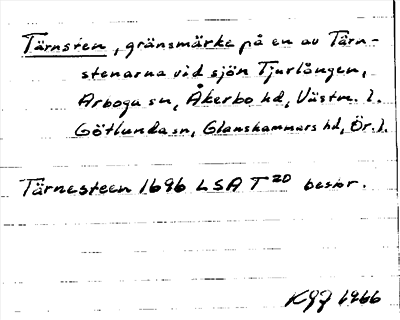 Tärnsten, gränsmärke på en av Tärn-
stenarna vid sjön Tjurlången,
Arboga sn, Åkerbo hd, Västm. l.
Götlunda sn, Glanshammars hd, Ör. l.
Tärnesteen 1696 LSA T 20 beskr.
KGJ 1966